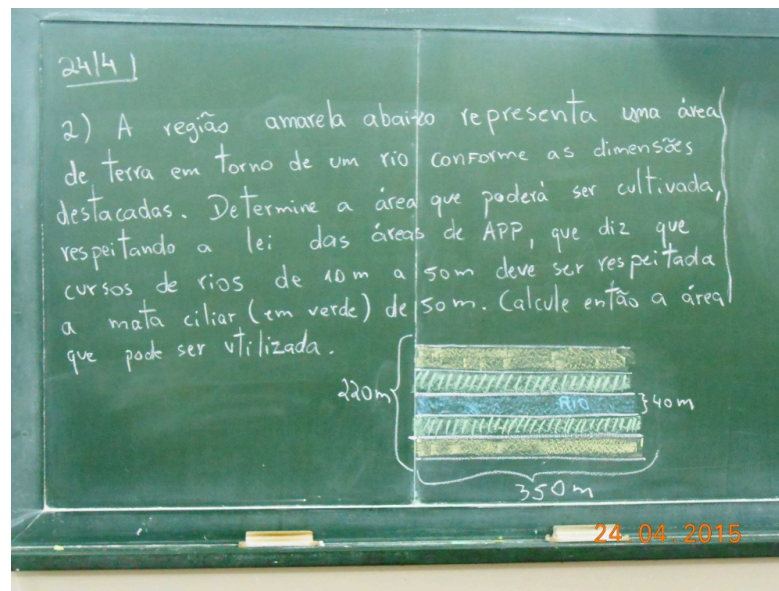 24/4
2) A região amarela abaixo representa uma área
de terra em torno de um rio conforme as dimensões
destacadas. Determine a área que poderá ser cultivada,
respeitando a lei das áreas de APP, que diz que
cursos de rios de 10m a 50m deve ser respeitada
a mata ciliar (em verde) de 50m. Calcule então a área
que pode ser utilizada.
220m
RIO
40m
350m
24 04 2015